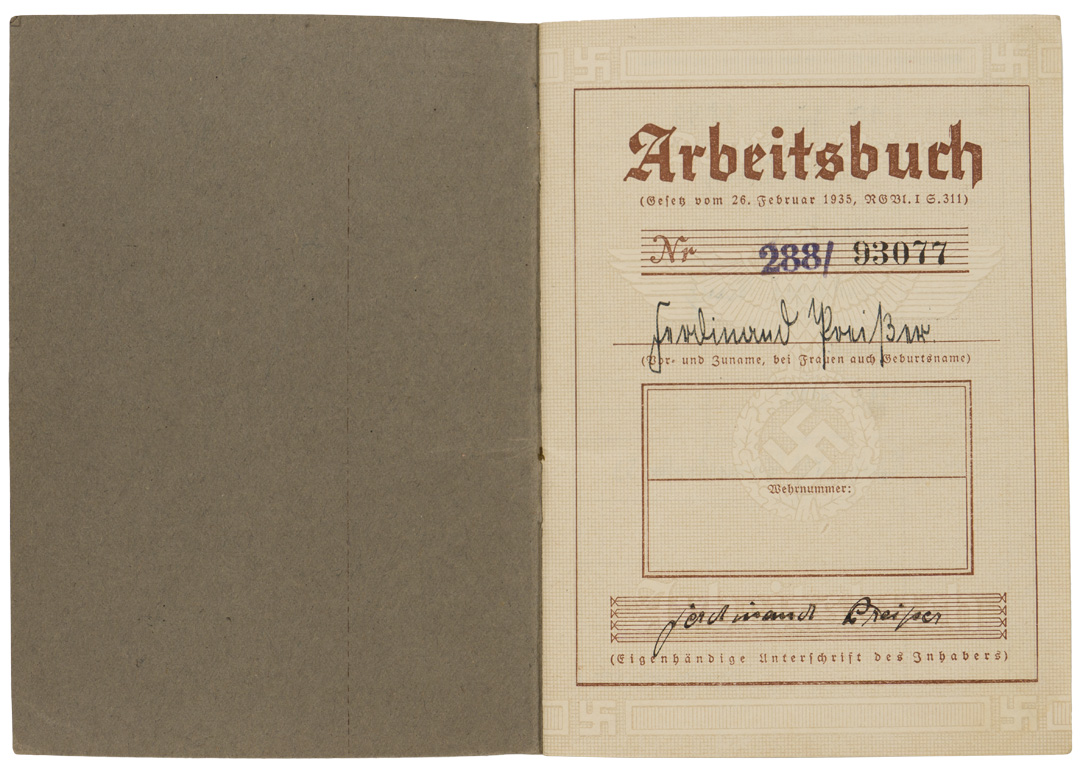 Arbeitsbuch
(Gesetz vom 26. Februar 1935, RGBl. I S. 311)
Nr 288/ 93077
Ferdinand Preißer
(Vor- und Zuname, bei Frauen auch Geburtsname)
Wehrnummer:
Ferdinand Preißer
(Eigenhändige Unterschrift des Inhabers)